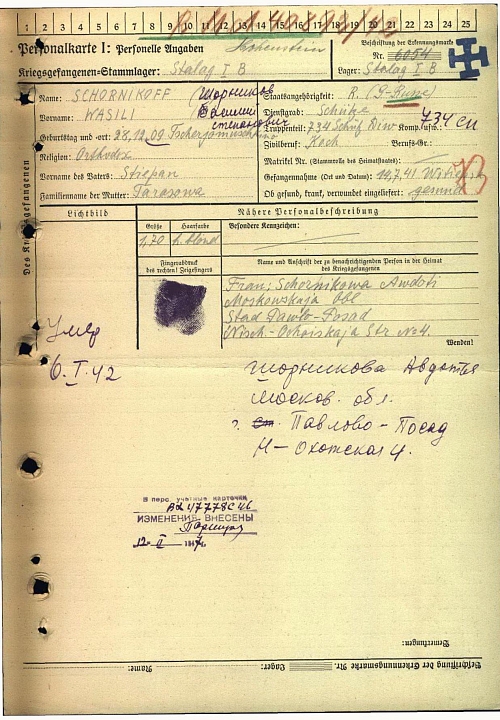 1 2 3 4 5 6 7 8 9 10 11 12 13 14 15 16 17 18 19 20 21 22 23 24 25
Personalkarte I: Personelle Angaben
Hohenstein
Beschriftung der Erkennungsmarke
Nr. 6054
Kriegsgefangenen-Stammlager: Stalag I B
Lager: Stalag I B
Des Kriegsgefangenen
Name: SCHORNIKOFF Шорников
Staatsangehörigkeit: R. (G-Russe)
Vorname: WASILI Василий Степанович
Dienstgrad: Schütze
Truppenteil: 734 Schütz Diw Komp. usw.: 734 сп
Geburtstag und -ort: 28.12.09
Zivilberuf: Koch Berufs-Gr.:
Religion: Orthodox
Matrikel Nr. (Stammrolle des Heimatstaates):
Vorname des Vaters: Stiepan
Gefangennahme (Ort und Datum): 14.7.41 Witebsk
Familienname der Mutter: Tarasowa
Ob gesund, krank, verwundet eingeliefert: gesund
Lichtbild
Nähere Personalbeschreibung
Größe Haarfarbe Besondere Kennzeichen:
1,70 h. blond
Fingerabdruck
des rechten! Zeigefingers
Name und Anschrift der zu benachrichtigenden Person in der Heimat
des Kriegsgefangenen
Frau: Schornikowa Awdoti
Moskowskaja Obl
Stad Pawlo-Posad
Nisch-Ochoiskaja Str No 4.
Wenden!
Умер
6.I.42
Шорникова Авдотья
Москов. обл.
г. Павлово-Посад
Н-Охотская 4.
В перс. учетные карточки
ИЗМЕНЕНИЯ ВНЕСЕНЫ
Bemerkungen:
Beschriftung der Erkennungsmarke Nr. Lager: Name: